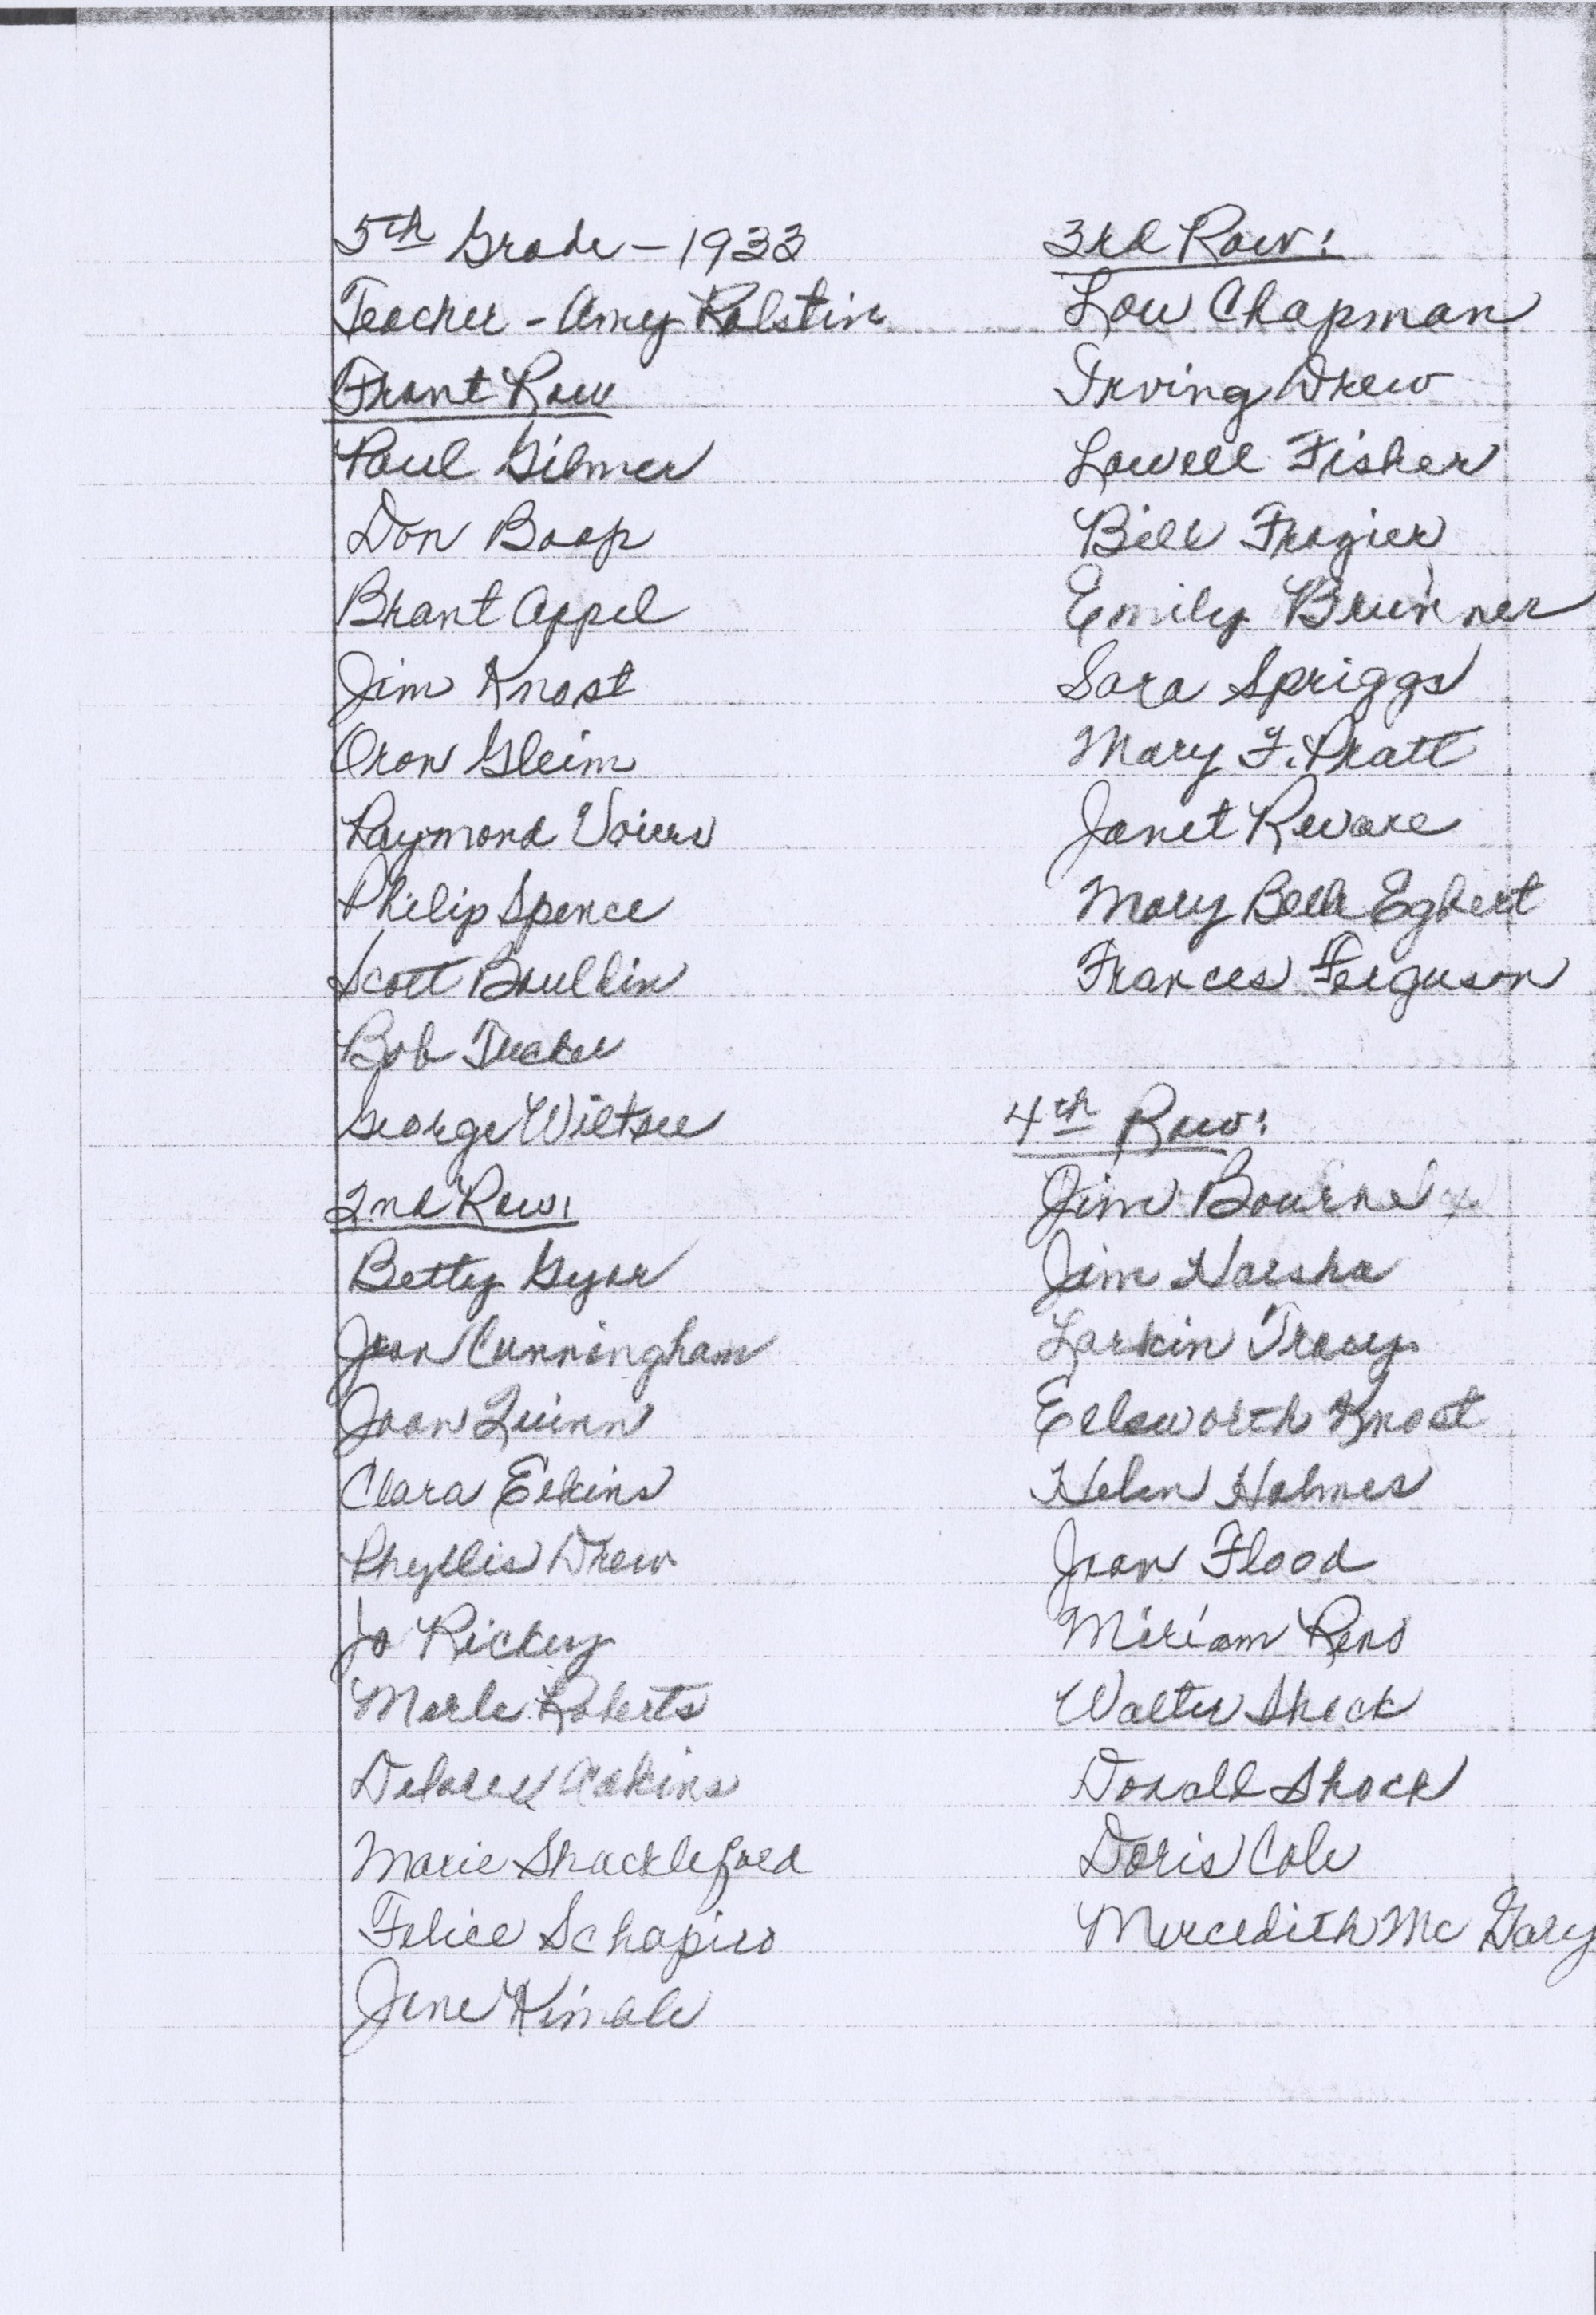 5th Grade - 1933
Teacher - Amy Rolstin
Front Row
Paul Gilmer
Don Boop
Brant Appel
Jim Knost
Oron Gleim
Raymond Voiers
Philip Spence
Scott Bouldin
Bob Tucker
George Wiltsee
2nd Row:
Betty Geyer
Jean Cunningham
Joan Quinn
Clara Elkins
Phyllis Drew
Jo Rickey
Merle Roberts
Delores Adkins
Marie Shackleford
Felice Schapiro
Jane Kimble
3rd Row:
Low Chapman
Irving Drew
Lowell Fisher
Bill Frazier
Emily Brunner
Sara Spriggs
Mary F. Pratt
Janet Revare
Mary Belle Egbert
Frances Ferguson
4th Row:
Jim Bourne
Jim Harsha
Larkin Tracy
Ellsworth Knost
Helen Holmes
Joan Flood
Miriam Reno
Walter Sheck
Donald Shock
Doris Cole
Mercedith Mc Gary